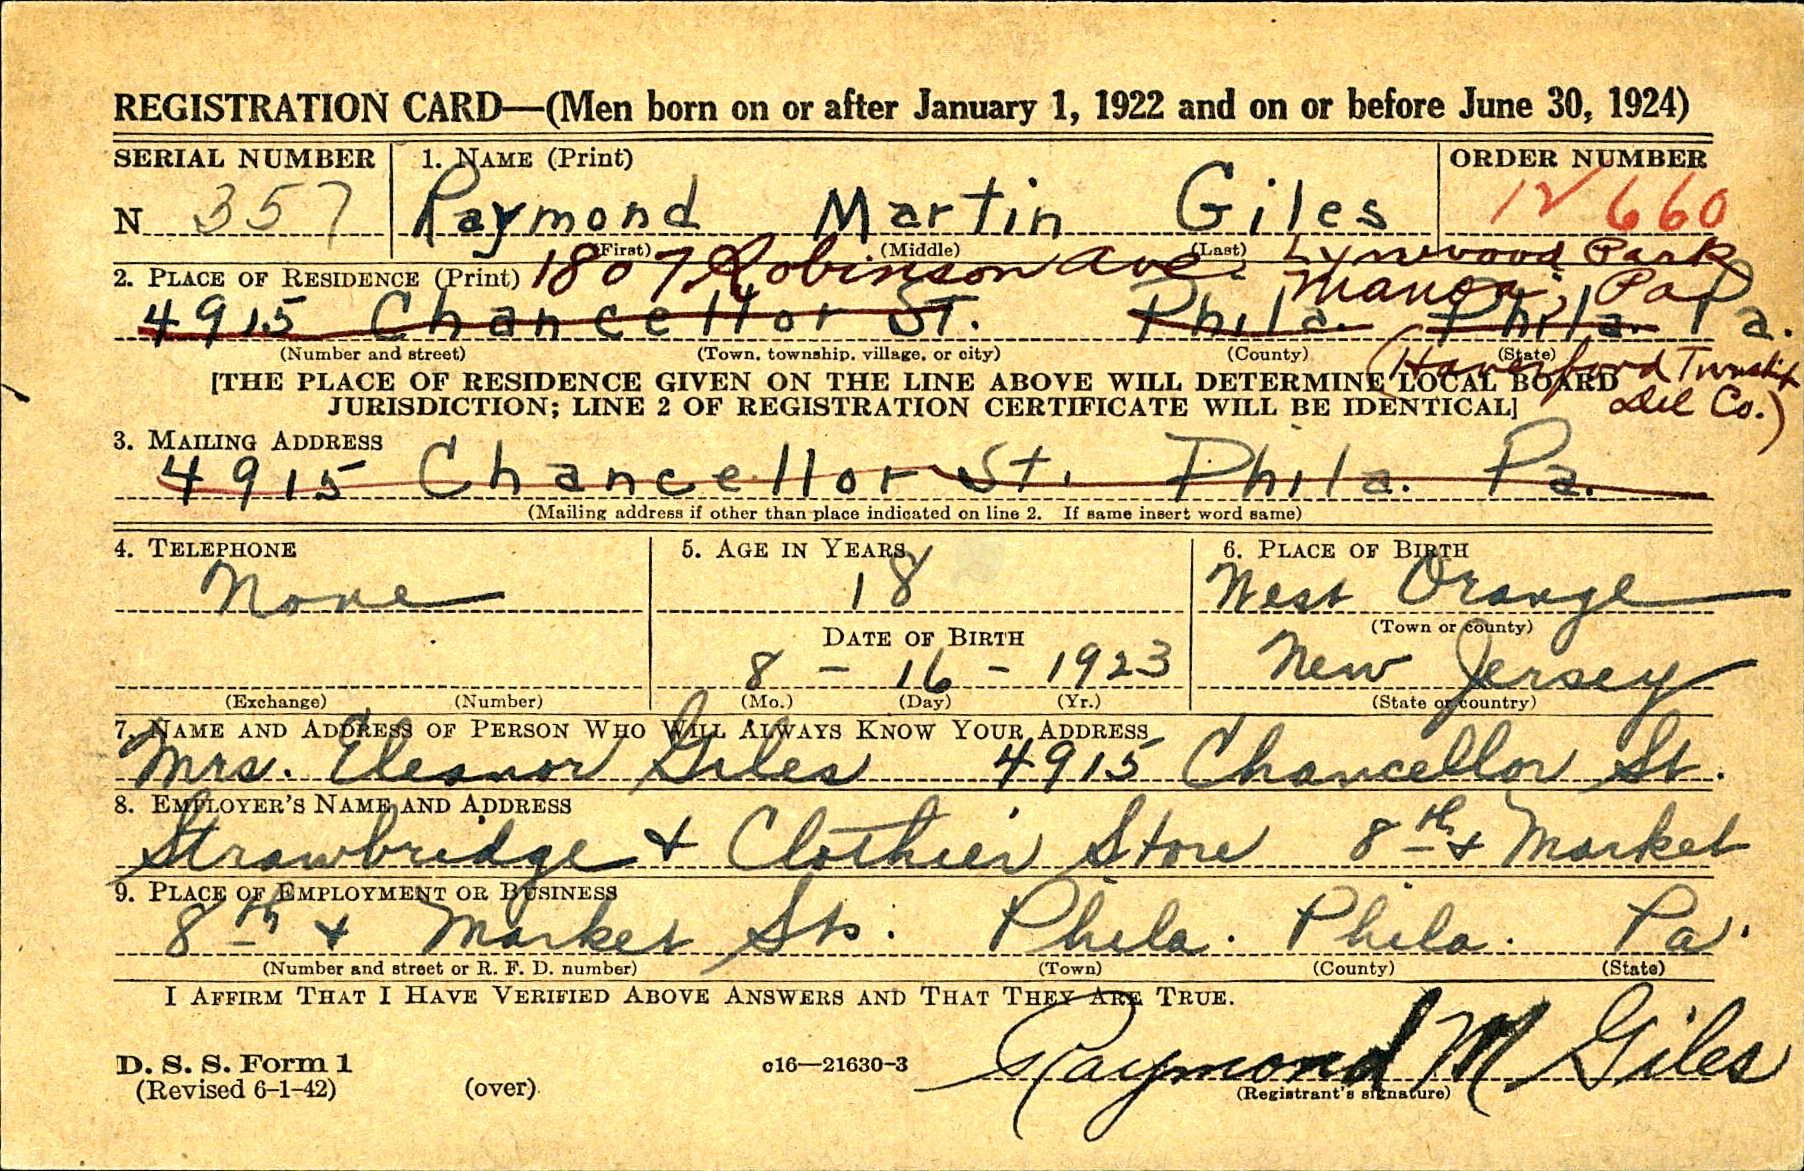 REGISTRATION CARD—(Men born on or after January 1, 1922 and on or before June 30, 1924)
SERIAL NUMBER 1. NAME (Print) ORDER NUMBER
N 357 Raymond Martin Giles 12660
(First) (Middle) (Last)
1807 Robinson Ave. Lynewood Park
2. PLACE OF RESIDENCE (Print) Manoa, Pa
4915 Chancellor St. Phila. Phila. Pa.
(Number and street) (Town, township, village, or city) (County) (State)
(Haverford Township
Del Co.)
[THE PLACE OF RESIDENCE GIVEN ON THE LINE ABOVE WILL DETERMINE LOCAL BOARD
JURISDICTION; LINE 2 OF REGISTRATION CERTIFICATE WILL BE IDENTICAL]
3. MAILING ADDRESS
4915 Chancellor St. Phila. Pa.
(Mailing address if other than place indicated on line 2. If same insert word same)
4. TELEPHONE 5. AGE IN YEARS 6. PLACE OF BIRTH
None 18 West Orange
(Town or county)
DATE OF BIRTH
8 - 16 - 1923 New Jersey
(Exchange) (Number) (Mo.) (Day) (Yr.) (State or country)
7. NAME AND ADDRESS OF PERSON WHO WILL ALWAYS KNOW YOUR ADDRESS
Mrs. Eleanor Giles 4915 Chancellor St.
8. EMPLOYER'S NAME AND ADDRESS
Strawbridge + Clothier Store 8th + Market
9. PLACE OF EMPLOYMENT OR BUSINESS
8th + Market Sts. Phila. Phila. Pa.
(Number and street or R. F. D. number) (Town) (County) (State)
I AFFIRM THAT I HAVE VERIFIED ABOVE ANSWERS AND THAT THEY ARE TRUE.
D. S. S. Form 1
(Revised 6-1-42) (over) c16—21630-3 Raymond M Giles
(Registrant's signature)